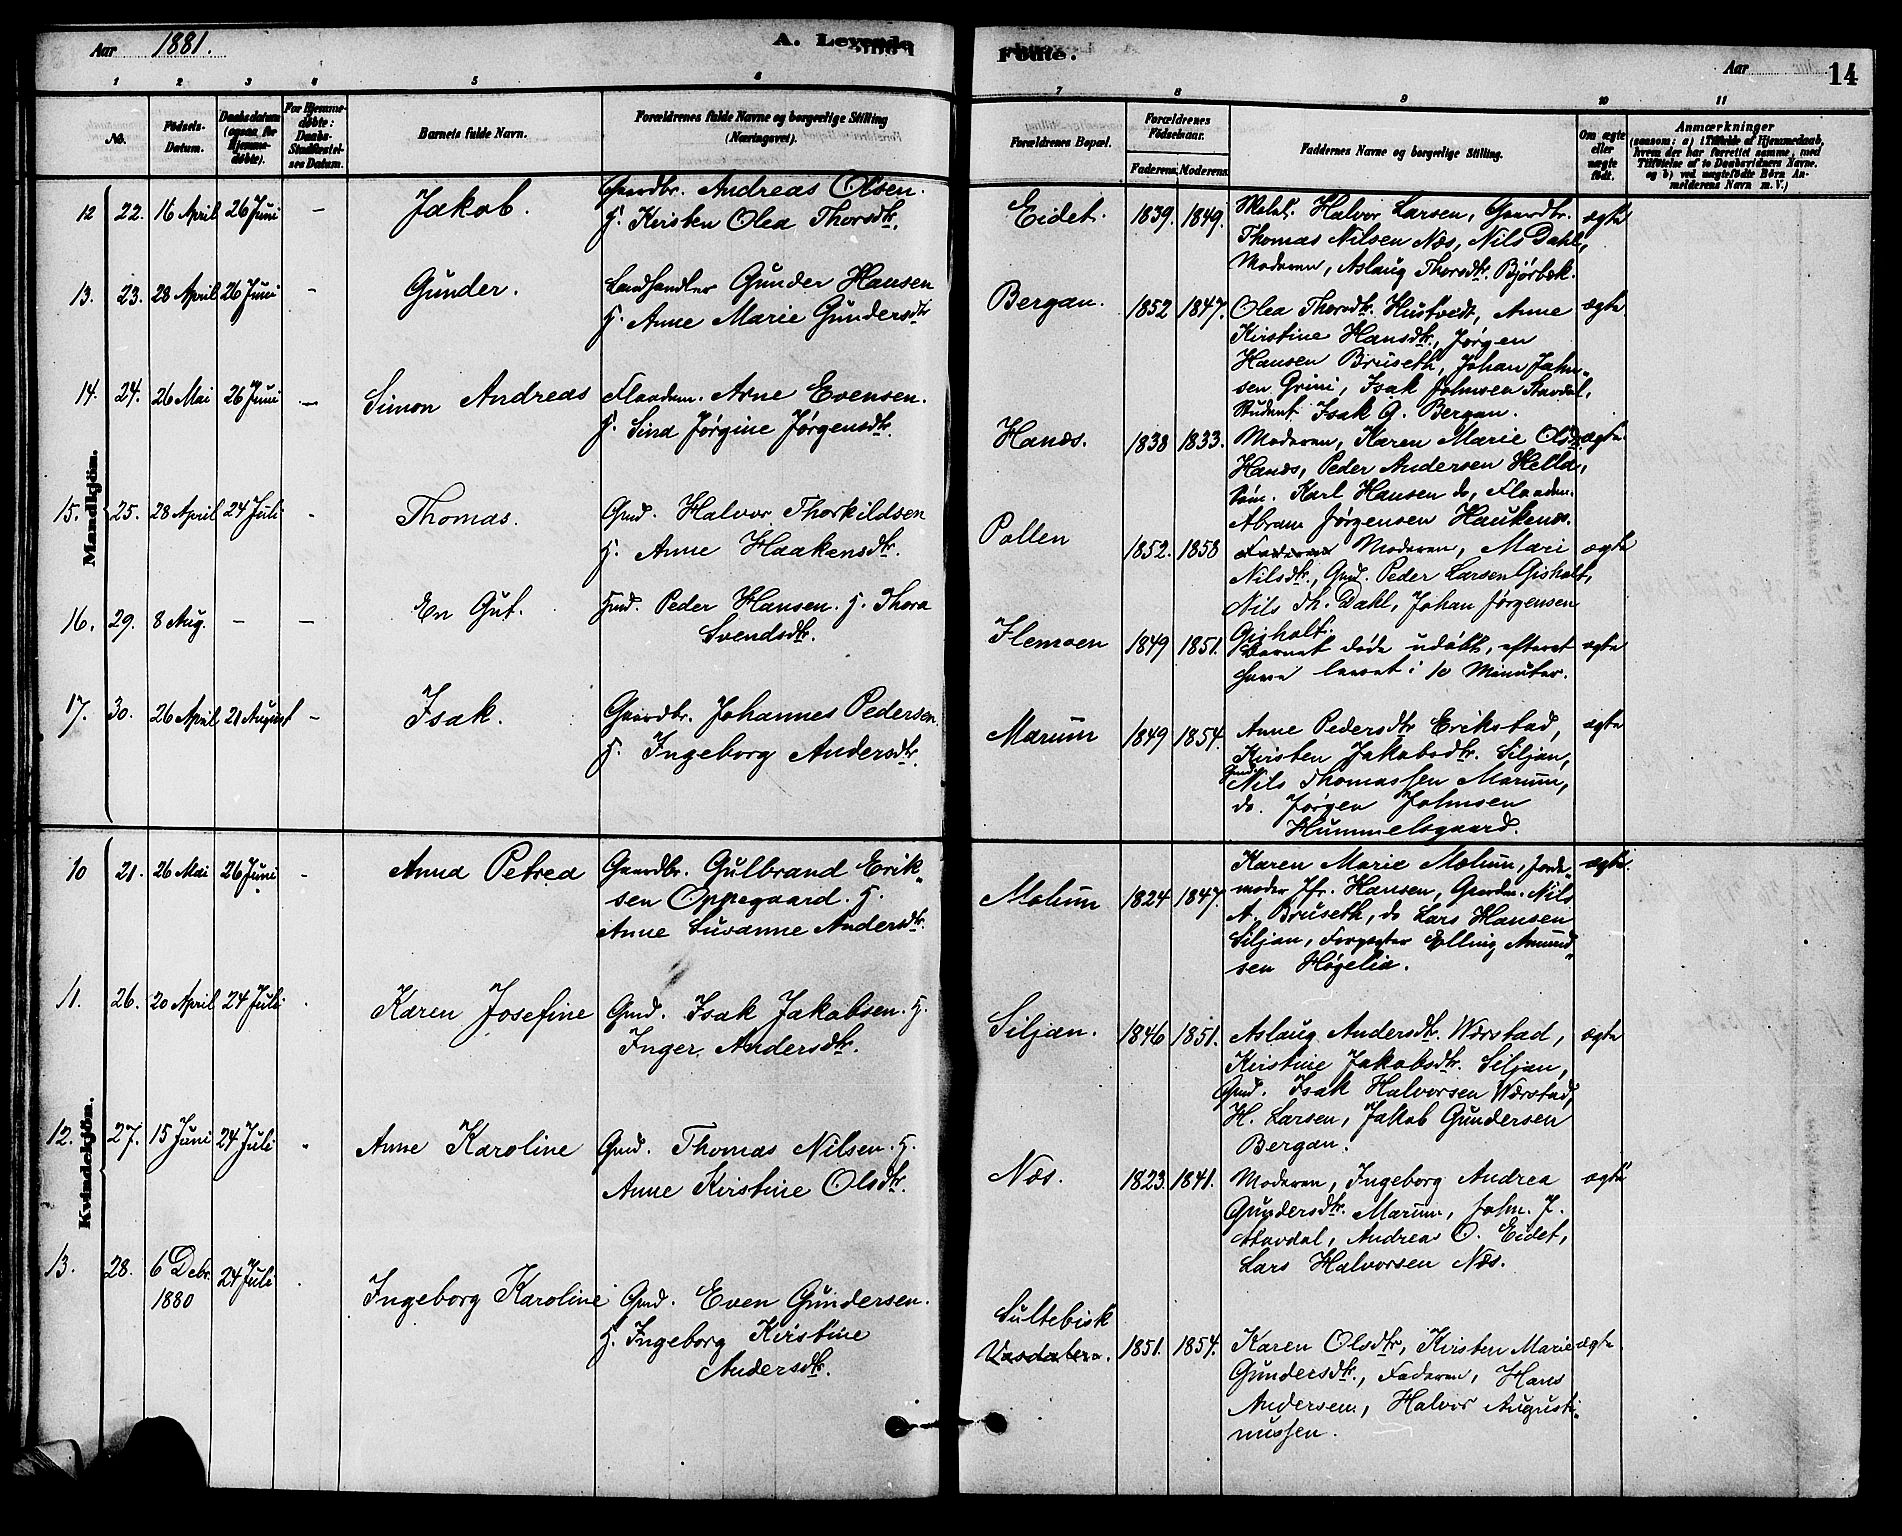 Aar 1881.
A. Levende
Fødte.
Aar
14
1 2 3 4 5 6
7 8 9 10 11
No.
Fødsels-
Datum.
Daabsdatum
(ogsaa for
Hjemme-
døbte).
For Hjemme-
døbte:
Daabs-
Stadfæstel-
ses Datum.
Barnets fulde Navn.
Forældrenes fulde Navne og borgerlige Stilling
(Næringsvei).
Forældrenes Bopæl.
Forældrenes
Fødselsaar.
Faderens. Moderens.
Faddernes Navne og borgerlige Stilling.
Om ægte
eller
uægte
født.
Anmærkninger
(saasom: a) i Tilfælde af Hjemmedaab,
hvem der har forrettet samme, med
Tilføielse af to Daabsvidners Navne.
og b) ved uægtefødte Børn An-
melderens Navn m. V.)
Mandkjön.
12 22. 16 April 26 Juni – Jakob. Gaardbr. Andreas Olsen.
H. Kirsten Olea Thorsdtr.
Eidet. 1839. 1849. Halvor Larsen, Gaardbr. ægte
Thomas Nilsen Næs, Nils Dahl,
Moderen, Aslaug Thorsdtr. Bjørbæk.
13. 23. 28 April 26 Juni – Gunder. Landhandler Gunder Hansen
H. Anne Marie Gundersdtr
Bergan. 1852 1847. Olea Thorsdtr. Hustvedt, Anne ægte
Kirstine Hansdtr., Jørgen
Hansen Bruseth, Johan Jahn-
sen Grini, Isak Johnsen Stavdal,
Student Isak G. Bergan.
14. 24. 26 Mai 26 Juni – Simon Andreas Flaadem. Arne Evensen.
H. Sina Jørgine Jørgensdtr.
Hanæs. 1838 1833. Moderen, Karen Marie Olsdtr ægte.
Hanæs, Peder Andersen Hella,
Tøm. Karl Hansen do, Flaadem.
Abram Jørgensen Haukenæs.
15. 25. 28 April 24 Juli - Thomas. Gmd. Halvor Thorkildsen
H. Anne Haakensdtr.
Pollen 1852. 1858 Faderen Moderen, Mari ægte
Nilsdtr., Gmd. Peder Larsen Gisholt,
Nils Th. Dahl, Johan Jørgensen
Gisholt.
16. 29. 8 Aug. – – En Gut. Hmd. Peder Hansen. H. Thora
Svendsdtr.
Flemoen 1849 1851. Barnet døde udøbt, efterat ægte
have levet i 10 Minuter.
17. 30. 26 April 21 August – Isak. Gaardbr. Johannes Pedersen.
H. Ingeborg Andersdtr.
Marum 1849 1854. Anne Pedersdtr Erikstad, ægte
Kirsten Jakobsdtr. Siljan,
Gmd. Nils Thomassen Marum,
do. Jørgen Johnsen
Hummelsgaard.
Kvindekjön.
10 21. 26 Mai 26 Juni - Anna Petrea Gaardbr. Gulbrand Erik-
sen Oppegaard. H.
Anne Susanne Andersdtr.
Molum 1824 1847. Karen Marie Mælum, Jorde- ægte.
moder Jfr. Hansen, Gaardm. Nils
A. Bruseth, do Lars Hansen
Siljan, Forpagter Elling Amund-
sen Høgelia.
11. 26. 20 April 24 Juli . Karen Josefine Gmd. Isak Jakobsen. H.
Inger Andersdtr.
Siljan. 1846 1851. Aslaug Andersdtr. Wærstad, ægte
Kirstine Jakobsdtr. Siljan,
Gmd. Isak Halvorsen Wærstad,
H. Larsen, Jakob Gundersen
Bergan.
12. 27. 15 Juni 24 Juli - Anne Karoline Gmd. Thomas Nilsen. H.
Anne Kirstine Olsdtr.
Næs. 1823. 1841. Moderen, Ingeborg Andrea ægte
Gundersdtr. Marum, John J.
Stavdal, Andreas O. Eidet,
Lars Halvorsen Næs.
13. 28. 6 Debr. 24 Juli . Ingeborg Karoline Gmd. Even Gundersen.
1880
H. Ingeborg Kirstine
Andersdtr.
Sultebisk
Vasdalen. 1851. 1854. Karen Olsdtr, Kirsten Marie ægte
Gundersdtr., Faderen, Hans
Andersen, Halvor Augusti-
nussen.